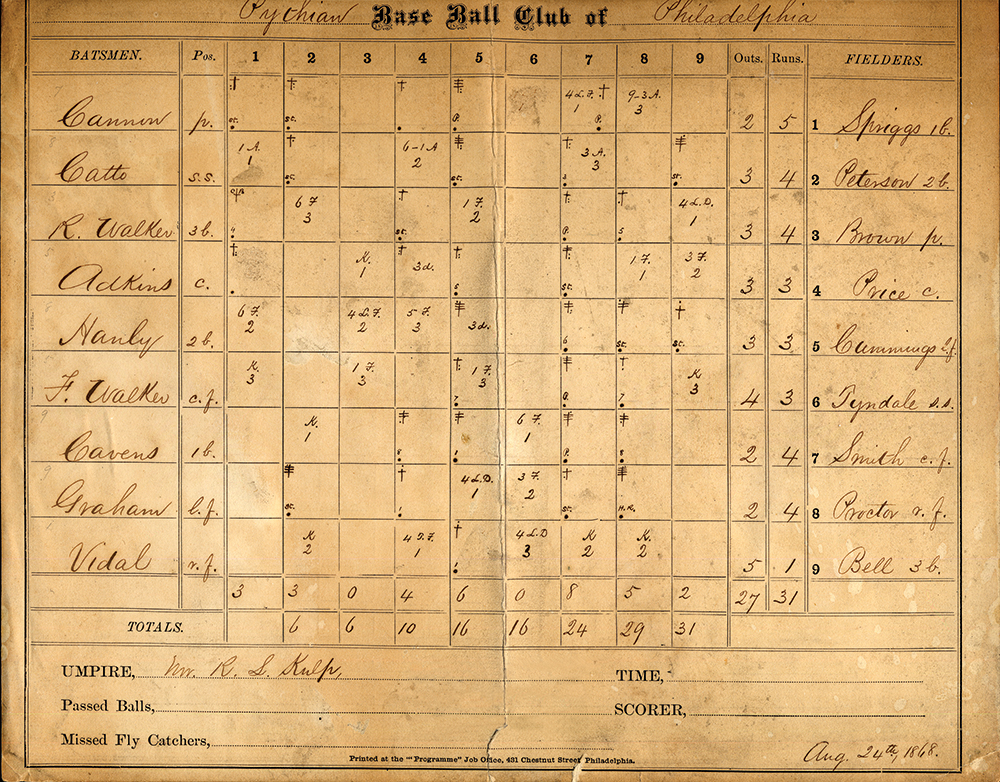 Pythian Base Ball Club of Philadelphia
BATSMEN. Pos. 1 2 3 4 5 6 7 8 9 Outs. Runs. FIELDERS.
Cannon p. 4 L.F. 1 9-3 A. 3 2 5 1 Spriggs 1b.
Catto s.s. 1 A. 1 6-1 A 2 3 A. 3 3 4 2 Peterson 2b.
R. Walker 3b. 6 F 3 1 F. 2 4 L.D. 1 3 4 3 Brown p.
Adkins c. K. 1 3d. 1 F. 1 3 F. 2 3 3 4 Price c.
Hanly 2b. 6 F. 2 4 L.F. 2 5 F. 3 3d. 3 3 5 Cummings l.f.
F. Walker c.f. K. 3 1 F. 3 1 F. 3 K 3 4 3 6 Tyndale s.s.
Cavens 1b. K. 1 6 F. 1 2 4 7 Smith c.f.
Graham l.f. 4 L.D. 1 3 F. 2 H.R. 2 4 8 Proctor r.f.
Vidal r.f. K 2 1 4 L.D 3 K 2 K. 2 5 1 9 Bell 3b.
3 3 0 4 6 0 8 5 2 27 31
TOTALS. 6 6 10 16 16 24 29 31
UMPIRE, Mr. R. S. Kulp,
TIME,
Passed Balls,
SCORER,
Missed Fly Catchers,
Aug. 24th, 1868.
Printed at the "Programme" Job Office, 431 Chestnut Street Philadelphia.